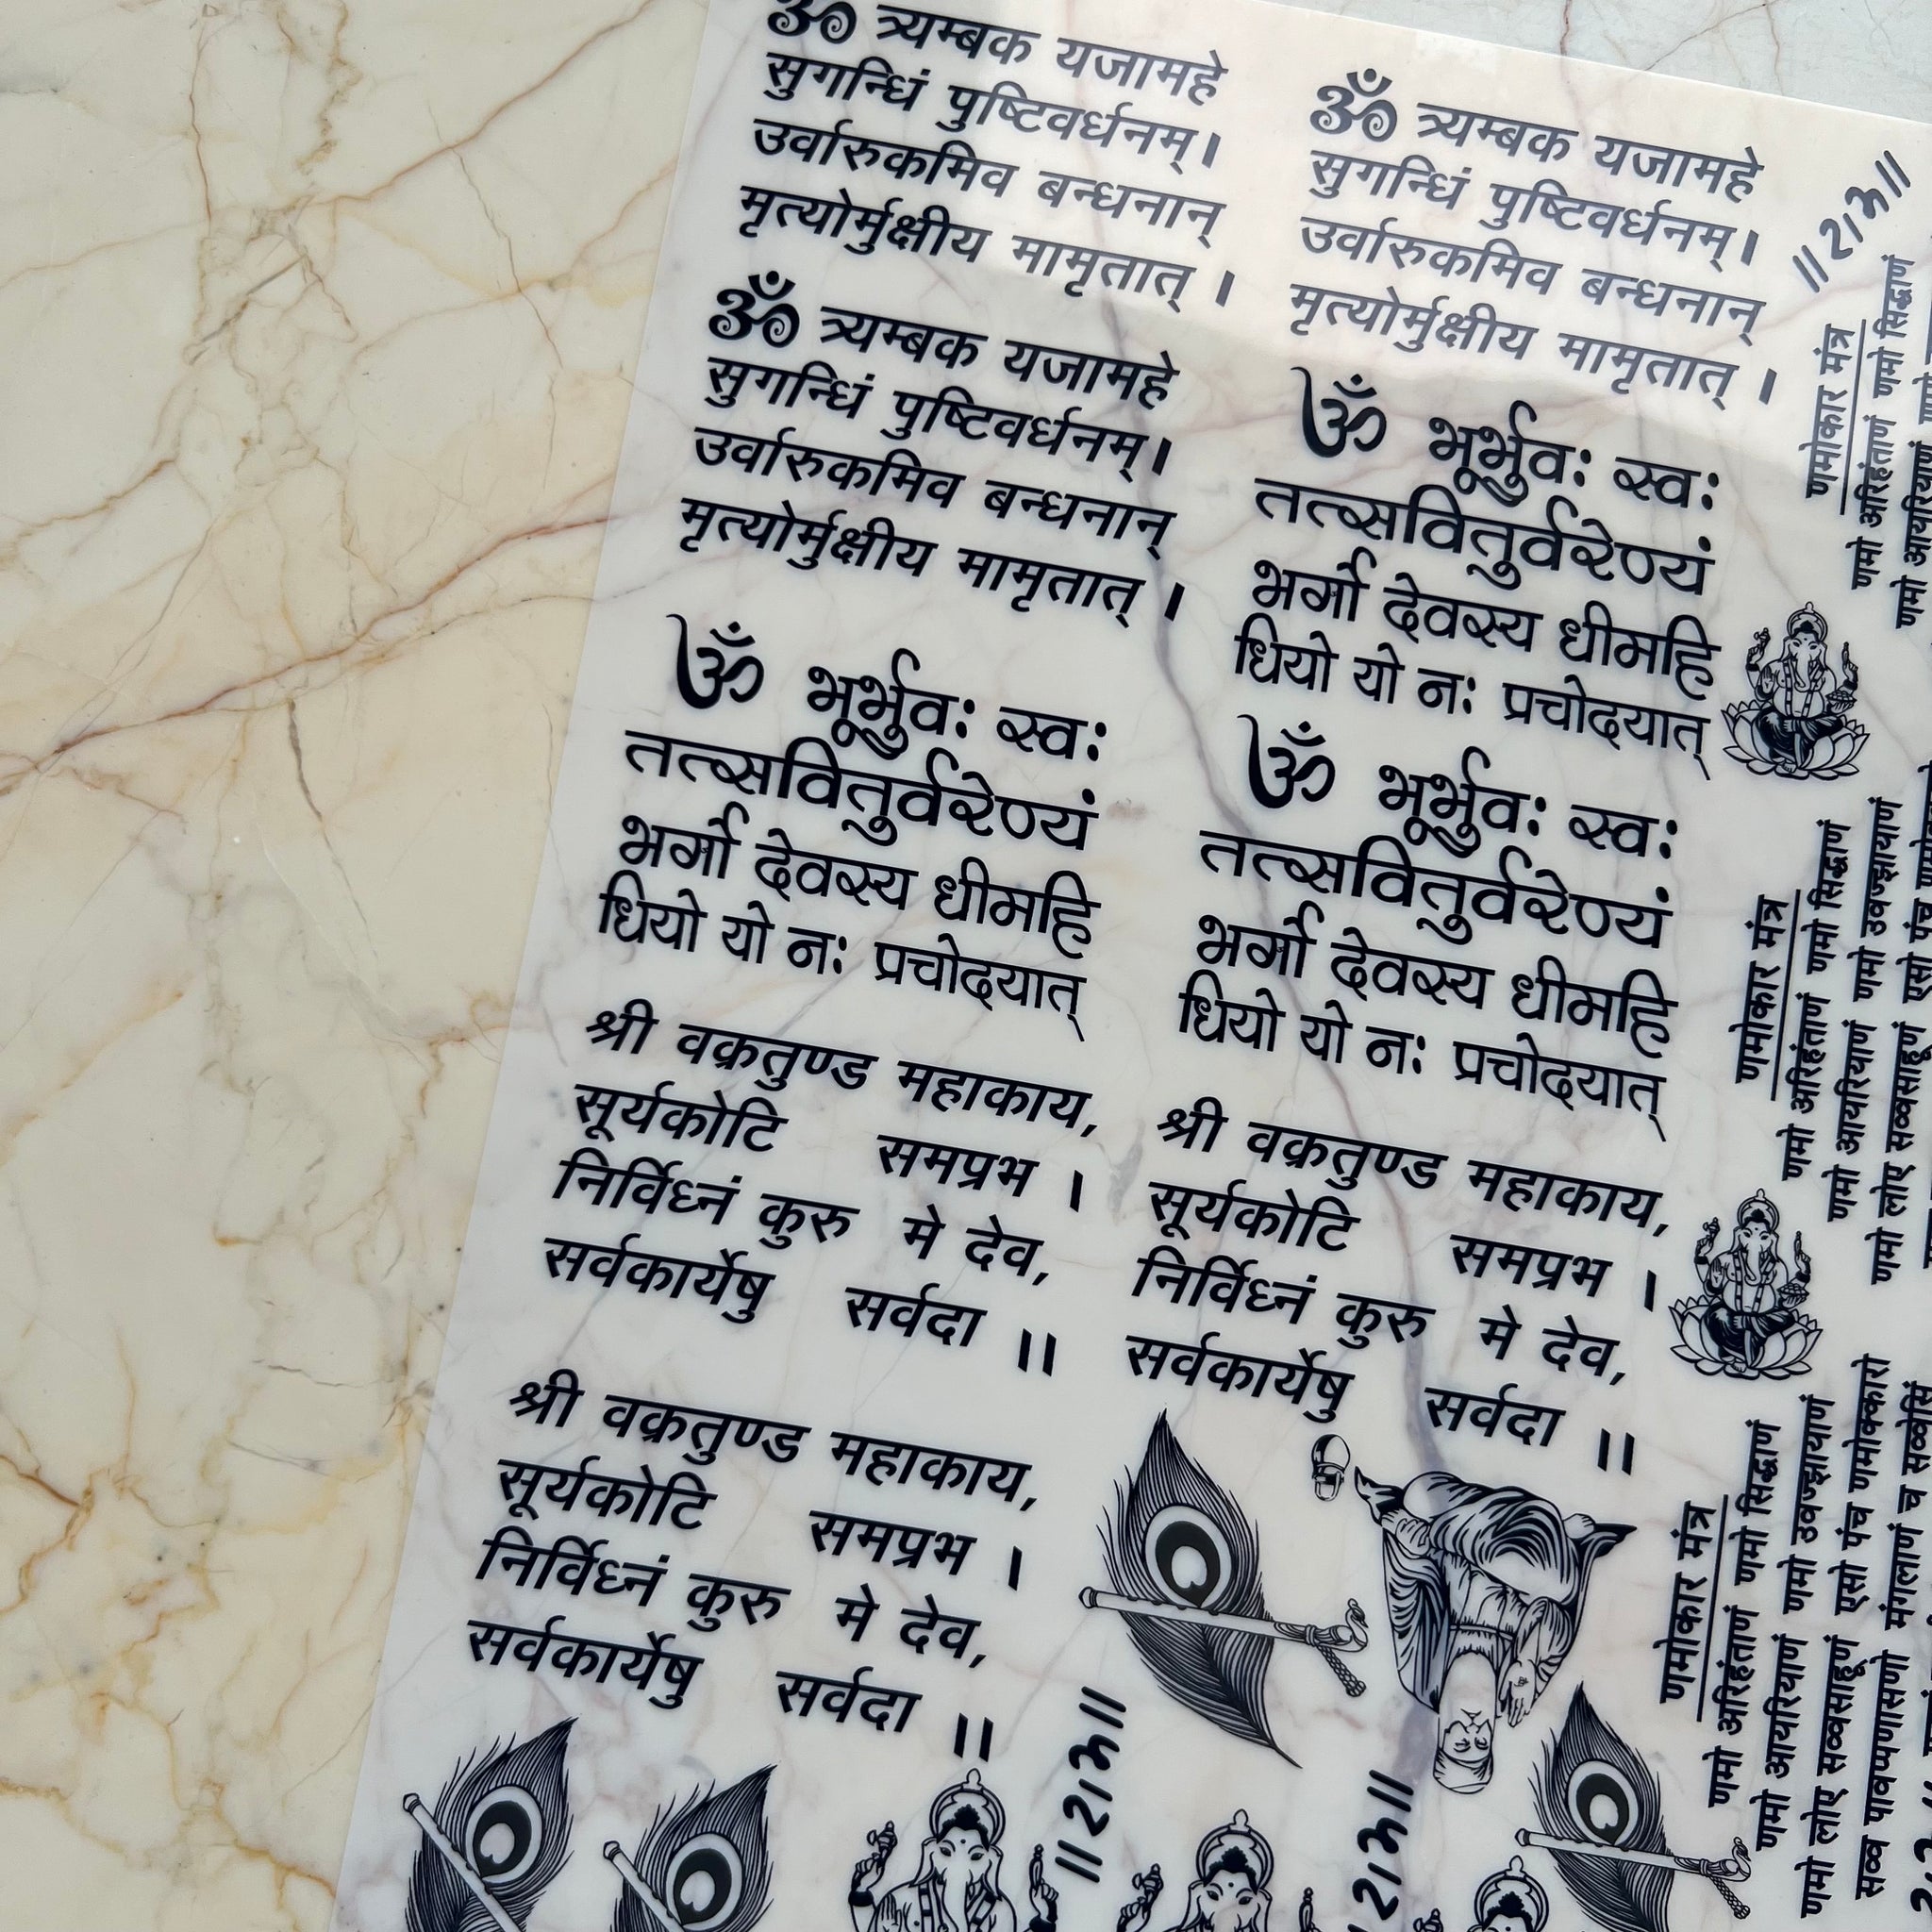 ॐ त्र्यम्बक यजामहे
सुगन्धिं पुष्टिवर्धनम्।
उर्वारुकमिव बन्धनान्
मृत्योर्मुक्षीय मामृतात् ।
ॐ त्र्यम्बक यजामहे
सुगन्धिं पुष्टिवर्धनम्।
उर्वारुकमिव बन्धनान्
मृत्योर्मुक्षीय मामृतात् ।
ॐ भूर्भुवः स्वः
तत्सवितुर्वरेण्यं
भर्गो देवस्य धीमहि
धियो यो नः प्रचोदयात्
श्री वक्रतुण्ड महाकाय,
सूर्यकोटि समप्रभ ।
निर्विघ्नं कुरु मे देव,
सर्वकार्येषु सर्वदा ।।
श्री वक्रतुण्ड महाकाय,
सूर्यकोटि समप्रभ ।
निर्विघ्नं कुरु मे देव,
सर्वकार्येषु सर्वदा ।।
ॐ त्र्यम्बक यजामहे
सुगन्धिं पुष्टिवर्धनम्।
उर्वारुकमिव बन्धनान्
मृत्योर्मुक्षीय मामृतात् ।
ॐ भूर्भुवः स्वः
तत्सवितुर्वरेण्यं
भर्गो देवस्य धीमहि
धियो यो नः प्रचोदयात्
ॐ भूर्भुवः स्वः
तत्सवितुर्वरेण्यं
भर्गो देवस्य धीमहि
धियो यो नः प्रचोदयात्
श्री वक्रतुण्ड महाकाय,
सूर्यकोटि समप्रभ ।
निर्विघ्नं कुरु मे देव,
सर्वकार्येषु सर्वदा ।।
॥राम॥
॥राम॥
॥राम॥
णमोकार मंत्र
णमो अरिहंताणं णमो सिद्धाणं
णमो आयरियाणं
णमोकार मंत्र
णमो अरिहंताणं णमो सिद्धाणं
णमो आयरियाणं णमो उवज्झायाणं
णमो लोए सव्वसाहूणं एसो पंच
णमोकार मंत्र
णमो अरिहंताणं णमो सिद्धाणं
णमो आयरियाणं णमो उवज्झायाणं
णमो लोए सव्वसाहूणं एसो पंच णमोक्कारो
सव्व पावप्पणासणो मंगलाणं च सव्वेसिं